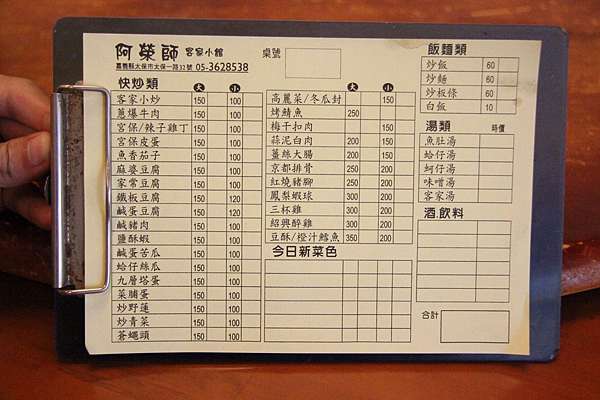 阿榮師 客家小館
嘉義縣太保市太保一路32號 05-3628538
桌號
快炒類 大 小
客家小炒 150 100
蔥爆牛肉 150 100
宮保/辣子雞丁 150 100
宮保皮蛋 150 100
魚香茄子 150 100
麻婆豆腐 150 100
家常豆腐 150 100
鐵板豆腐 150 120
鹹蛋豆腐 150 120
鹹豬肉 150 100
鹽酥蝦 150 100
鹹蛋苦瓜 150 100
蛤仔絲瓜 150 100
九層塔蛋 150 100
菜脯蛋 150 100
炒野蓮 150 100
炒青菜 150 100
蒼蠅頭 150 100
大 小
高麗菜/冬瓜封 150
烤鯖魚 250
梅干扣肉 150
蒜泥白肉 200 150
薑絲大腸 200 150
京都排骨 250 200
紅燒豬腳 250 200
鳳梨蝦球 300 200
三杯雞 300 200
紹興醉雞 300 200
豆酥/橙汁鱈魚 350 200
今日新菜色
飯麵類
炒飯 60
炒麵 60
炒板條 60
白飯 10
湯類 時價
魚肚湯
蛤仔湯
蚵仔湯
味噌湯
客家湯
酒.飲料
合計